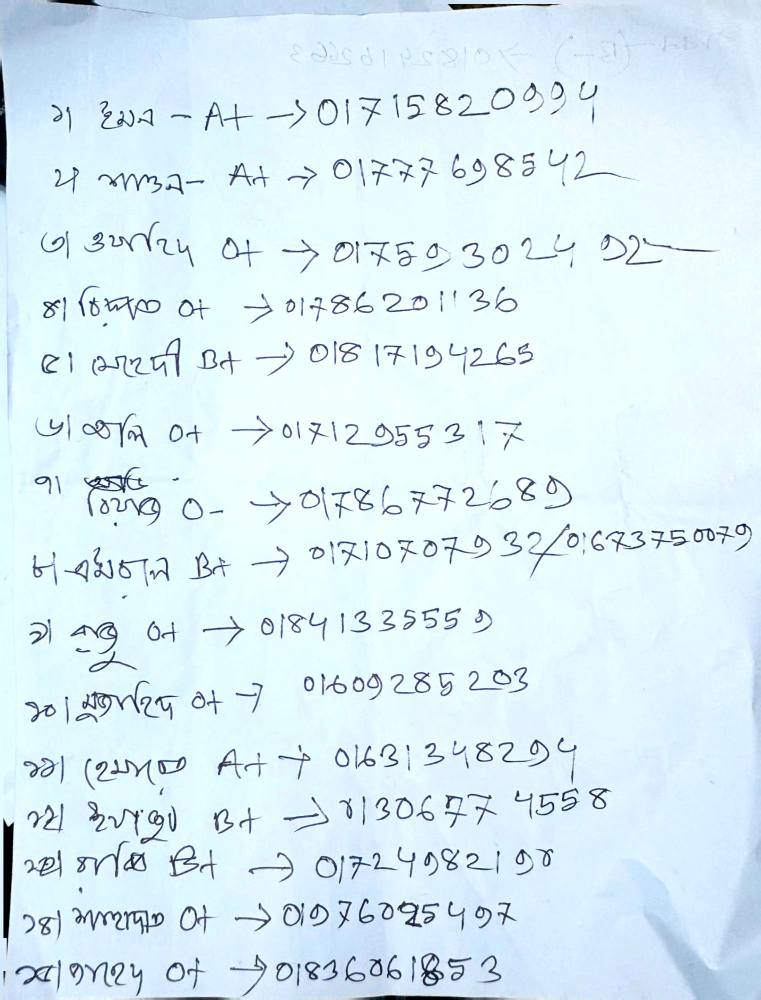 ১। ইমন - A+ → 01715820994
২। শাওন - A+ → 01777698542
৩। ওয়াহিদ O+ → 01759302492
৪। রিফাত O+ → 01786201136
৫। মেহেদী B+ → 01817194265
৬। অলি O+ → 01712955317
৭। O- → 01786772689
৮। B+ → 01710707932/01673750079
৯। রাজু O+ → 01841335559
১০। মুজাহিদ O+ → 01609285203
১১। হেমায়েত A+ → 01631348294
১২। B+ → 01306774558
১৩। রাকিব B+ → 0172498219
১৪। সাহাদাত O+ → 497
১৫। O+ → 018360618 53